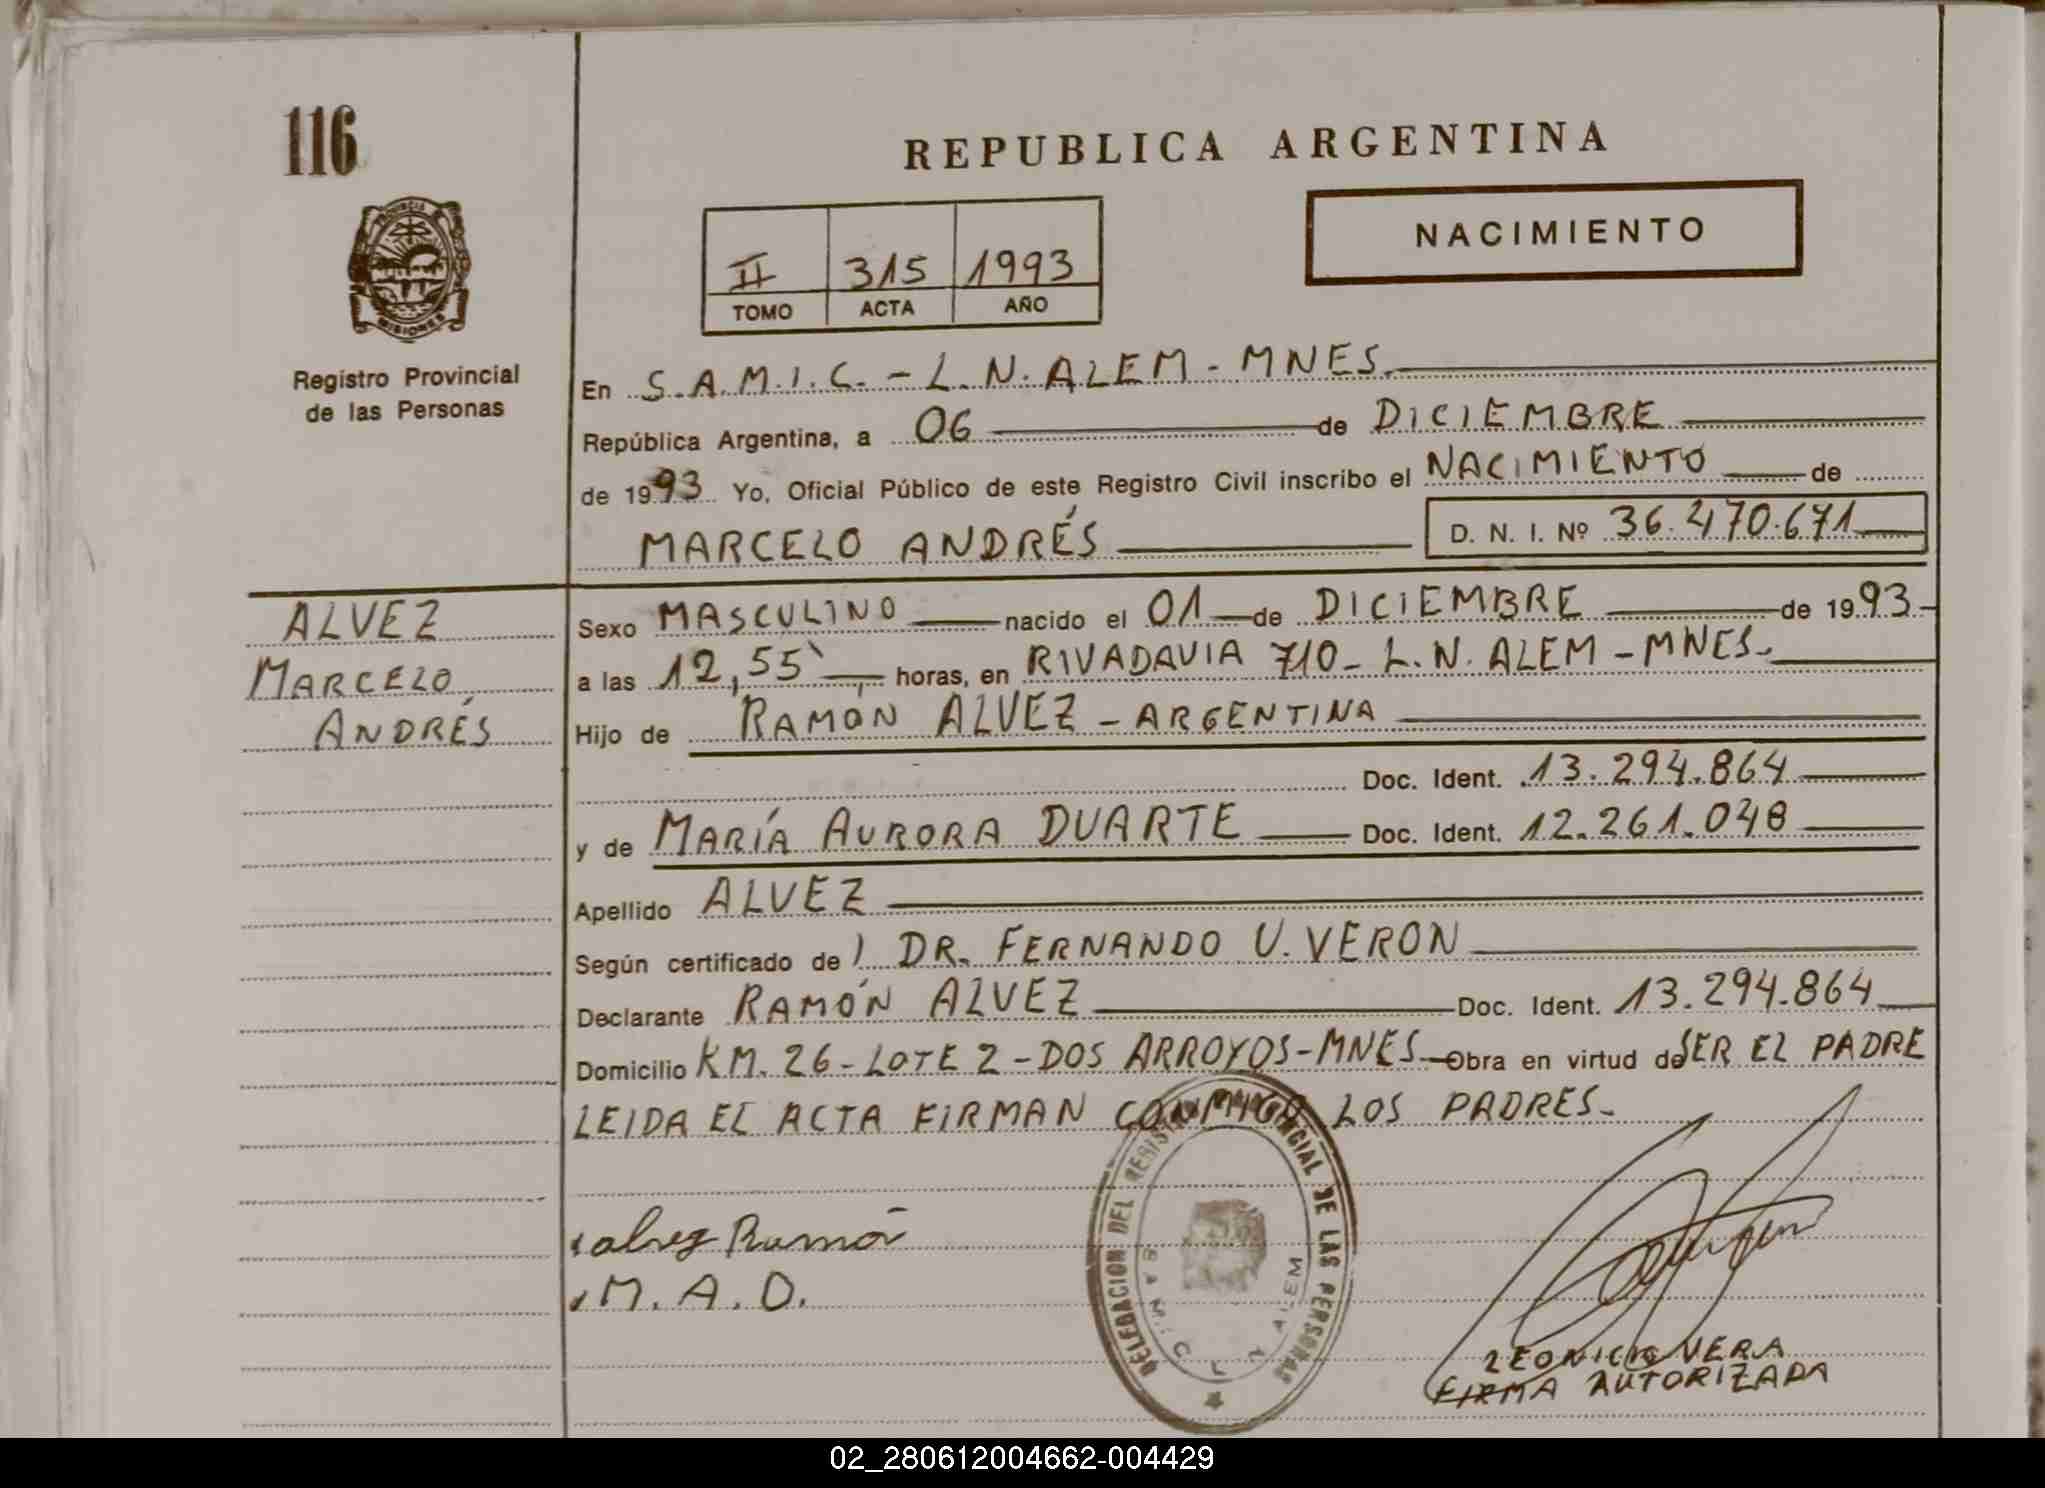 116
REPUBLICA ARGENTINA
PROVINCIA
MISIONES
NACIMIENTO
II 315 1993
TOMO ACTA AÑO
Registro Provincial
de las Personas
En S.A.M.I.C. - L.N. ALEM - MNES.
República Argentina, a 06 de DICIEMBRE
de 1993 Yo, Oficial Público de este Registro Civil inscribo el NACIMIENTO de
MARCELO ANDRÉS D. N. I. Nº 36.470.671
ALVEZ
MARCELO
ANDRÉS
Sexo MASCULINO nacido el 01 de DICIEMBRE de 1993-
a las 12,55 horas, en RIVADAVIA 710 - L.N. ALEM - MNES-
Hijo de RAMÓN ALVEZ - ARGENTINA
Doc. Ident. 13.294.864
y de MARÍA AURORA DUARTE Doc. Ident. 12.261.048
Apellido ALVEZ
Según certificado de ) DR. FERNANDO U. VERON
Declarante RAMÓN ALVEZ Doc. Ident. 13.294.864
Domicilio KM. 26 - LOTE 2 - DOS ARROYOS - MNES Obra en virtud de SER EL PADRE
LEIDA EL ACTA FIRMAN CONMIGO LOS PADRES-
Alvez Ramón
M. A. D.
DELEGACION DEL REGISTRO PROVINCIAL DE LAS PERSONAS
S A M I C L N ALEM
LEONICIO VERA
FIRMA AUTORIZADA
02_280612004662-004429